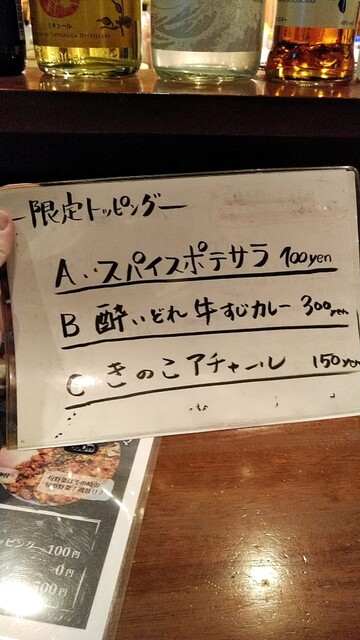 ミキュール
ー限定トッピングー
A‥スパイスポテサラ 100yen
B 酔いどれ 牛すじカレー 300yen
C きのこアチャール 150yen
ピング 100円
0円
500円